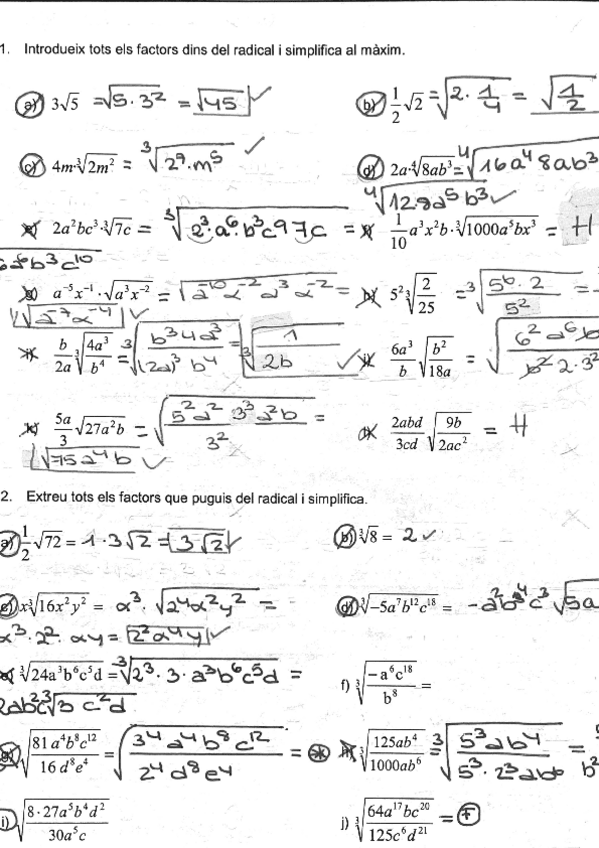 1. Introdueix tots els factors dins del radical i simplifica al màxim.
a) 3√5 = √(5·3²) = √45 ✓
b) 1/2 √2 = √(2·1/4) = √(1/2)
c) 4m·∛(2m²) = ∛(2⁹·m⁵) ✓
d) 2a·∜(8ab³) = ∜(16a⁴8ab³)
∜(128a⁵b³) ✓
2a²bc³·∛(7c) = ∛(2³·a⁶b³c⁹7c) =
1/10 a³x²b·∛(1000a⁵bx³) = H
a⁻⁵x⁻¹·√(a³x⁻²) = √(a⁻¹⁰x⁻²a³x⁻²) =
5² ∛(2/25) = ∛(5⁶·2/5²) =
√(a⁻⁷x⁻⁴) ✓
b/2a ∛(4a³/b⁴) = ∛(b³4a³/(2a)³b⁴) = ∛(1/2b) ✓
6a³/b √(b²/18a) =
5a/3 √(27a²b) = √(5²a²3³a²b/3²) =
2abd/3cd √(9b/2ac²) = H
√(75a⁴b) ✓
2. Extreu tots els factors que puguis del radical i simplifica.
a) 1/2 √72 = 1·3√2 = 3√2 ✓
b) ∛8 = 2 ✓
c) x∛(16x²y²) = x³·√(2⁴x²y²) =
d) ∛(-5a⁷b¹²c¹⁸) =
x³·2²·xy = 2²x⁴y ✓
∛(24a³b⁶c⁵d) = ∛(2³·3·a³b⁶c⁵d) =
f) ∛(-a⁶c¹⁸/b⁸) =
2ab²c ∛(3c²d)
√(81a⁴b⁸c¹²/16d⁸e⁴) = √(3⁴a⁴b⁸c¹²/2⁴d⁸e⁴) =
∛(125ab⁴/1000ab⁶) = ∛(5³ab⁴/5³·2³ab⁶) =
i) √(8·27a⁵b⁴d²/30a⁵c)
j) ∛(64a¹⁷bc²⁰/125c⁶d²¹) =